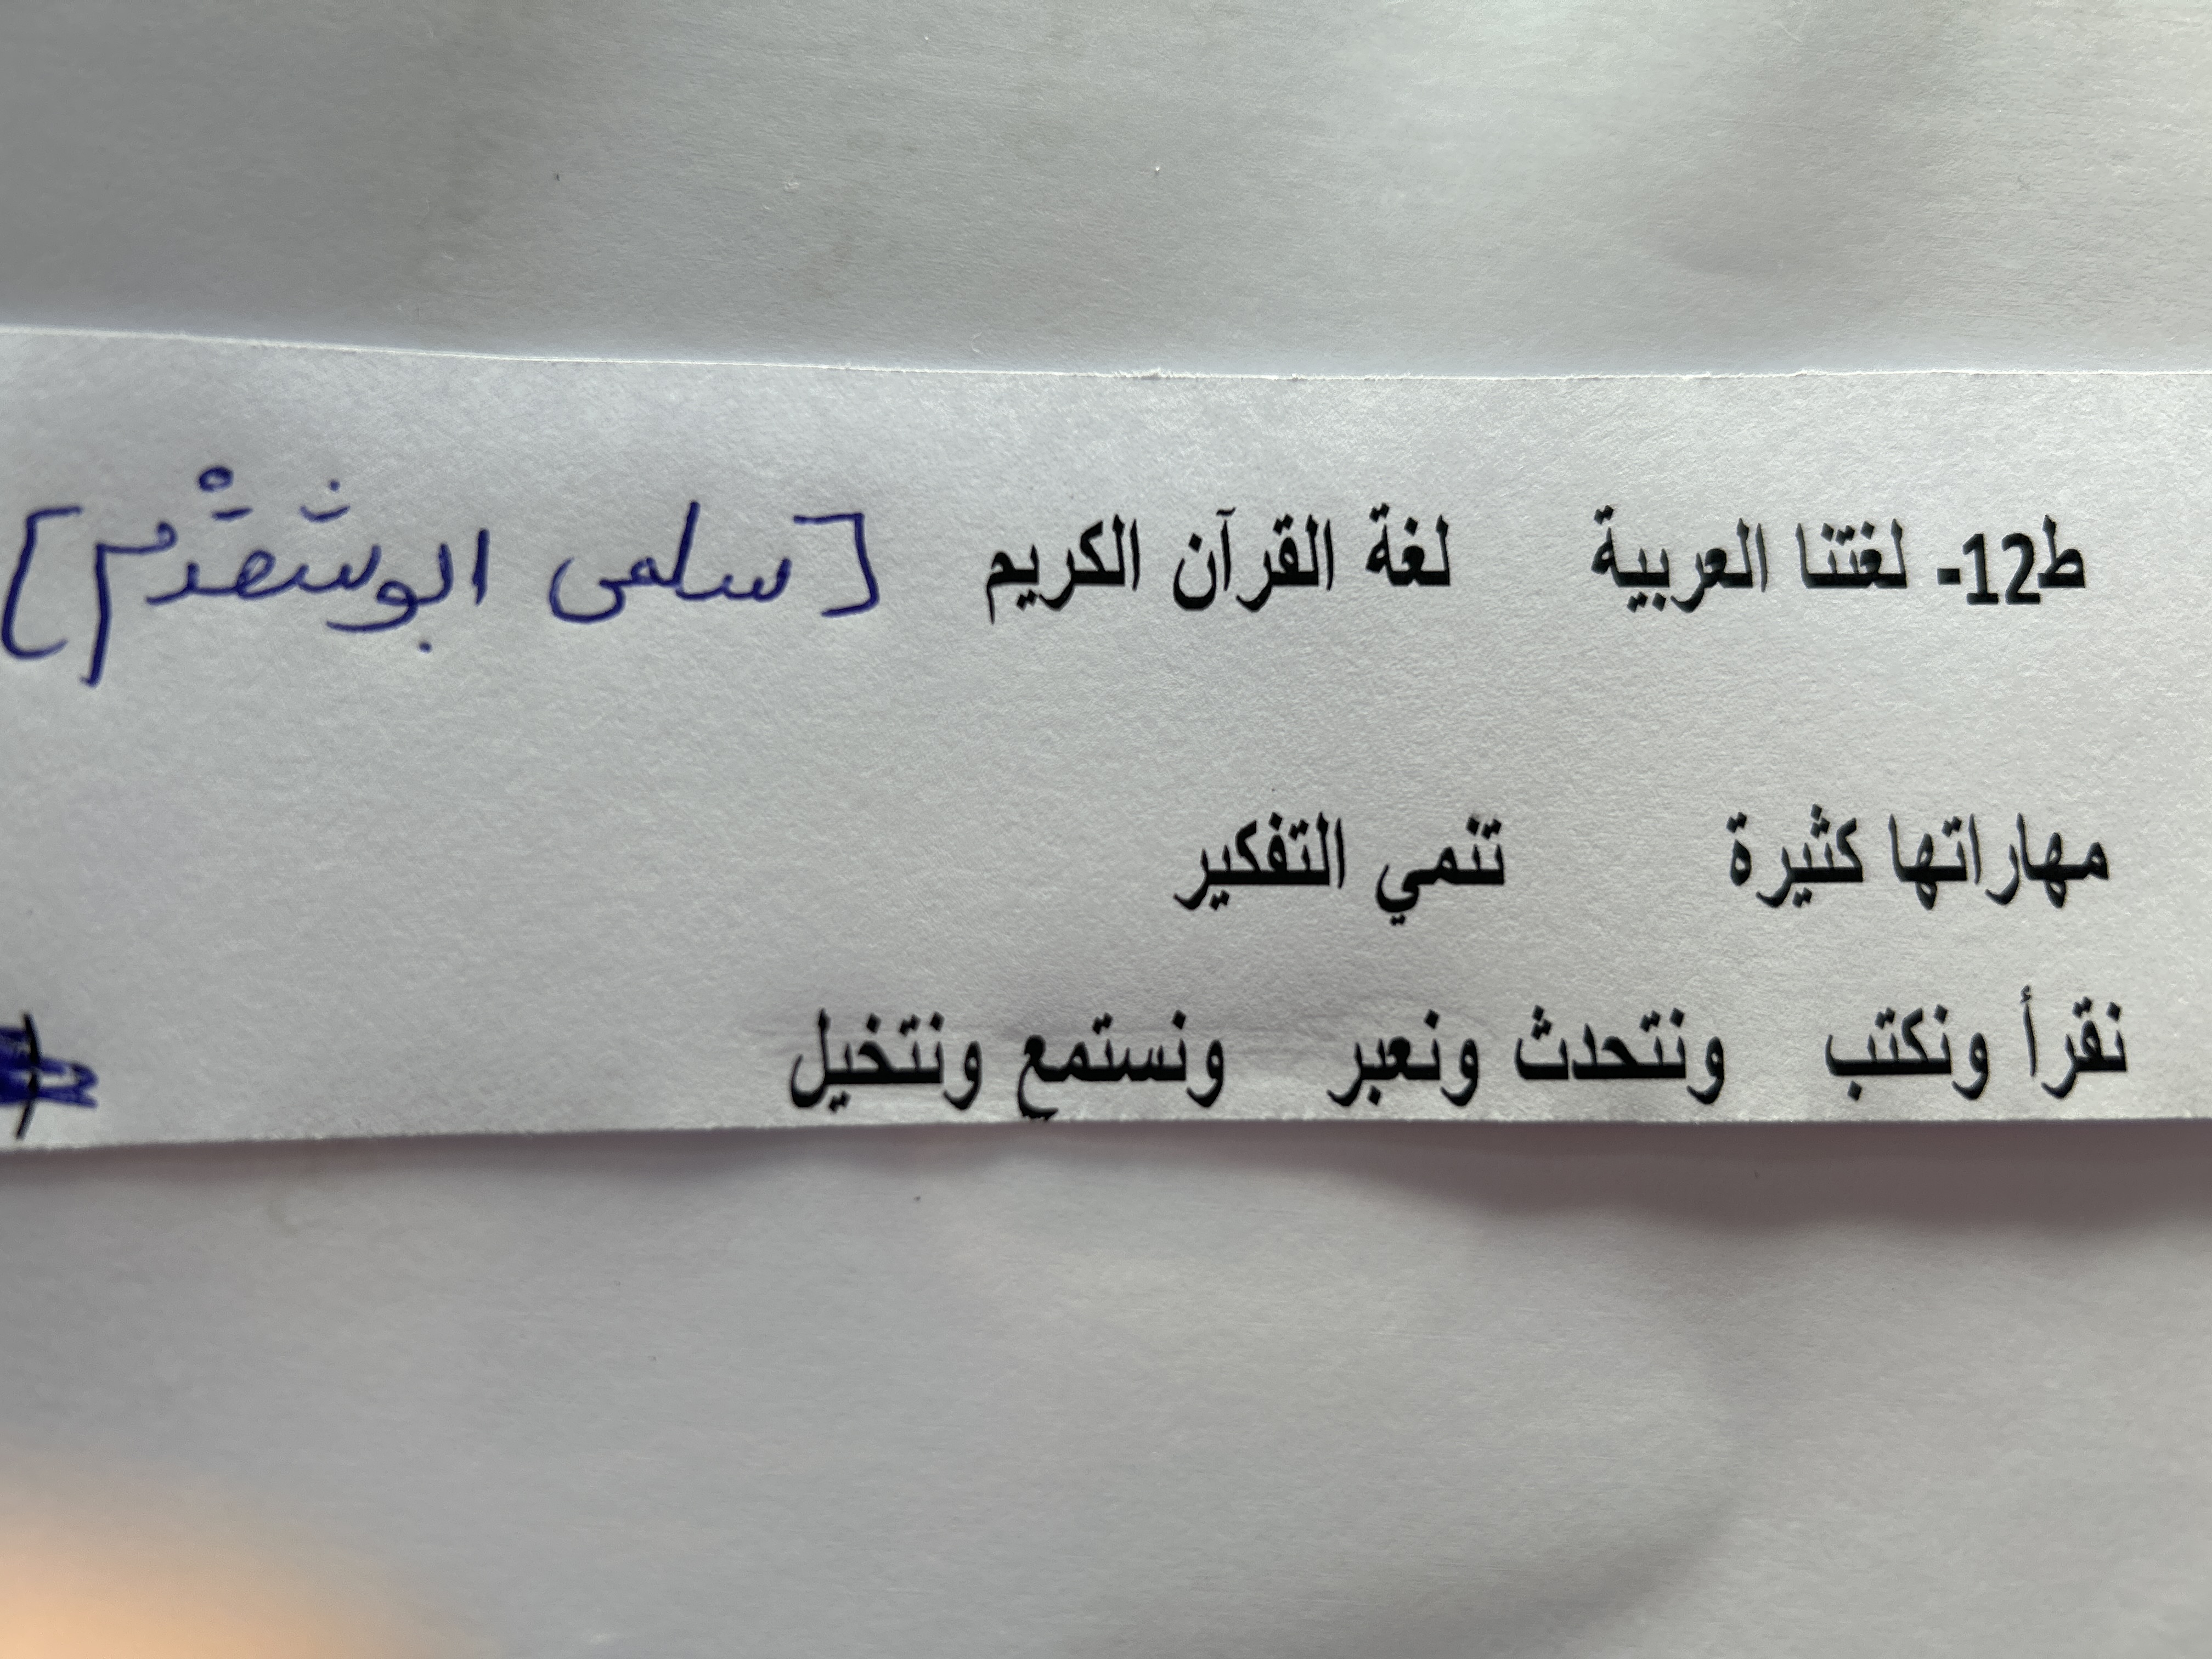 ط12- لغتنا العربية لغة القرآن الكريم [سلمى ابو شقدم]
مهاراتها كثيرة تنمي التفكير
نقرأ ونكتب ونتحدث ونعبر ونستمع ونتخيل